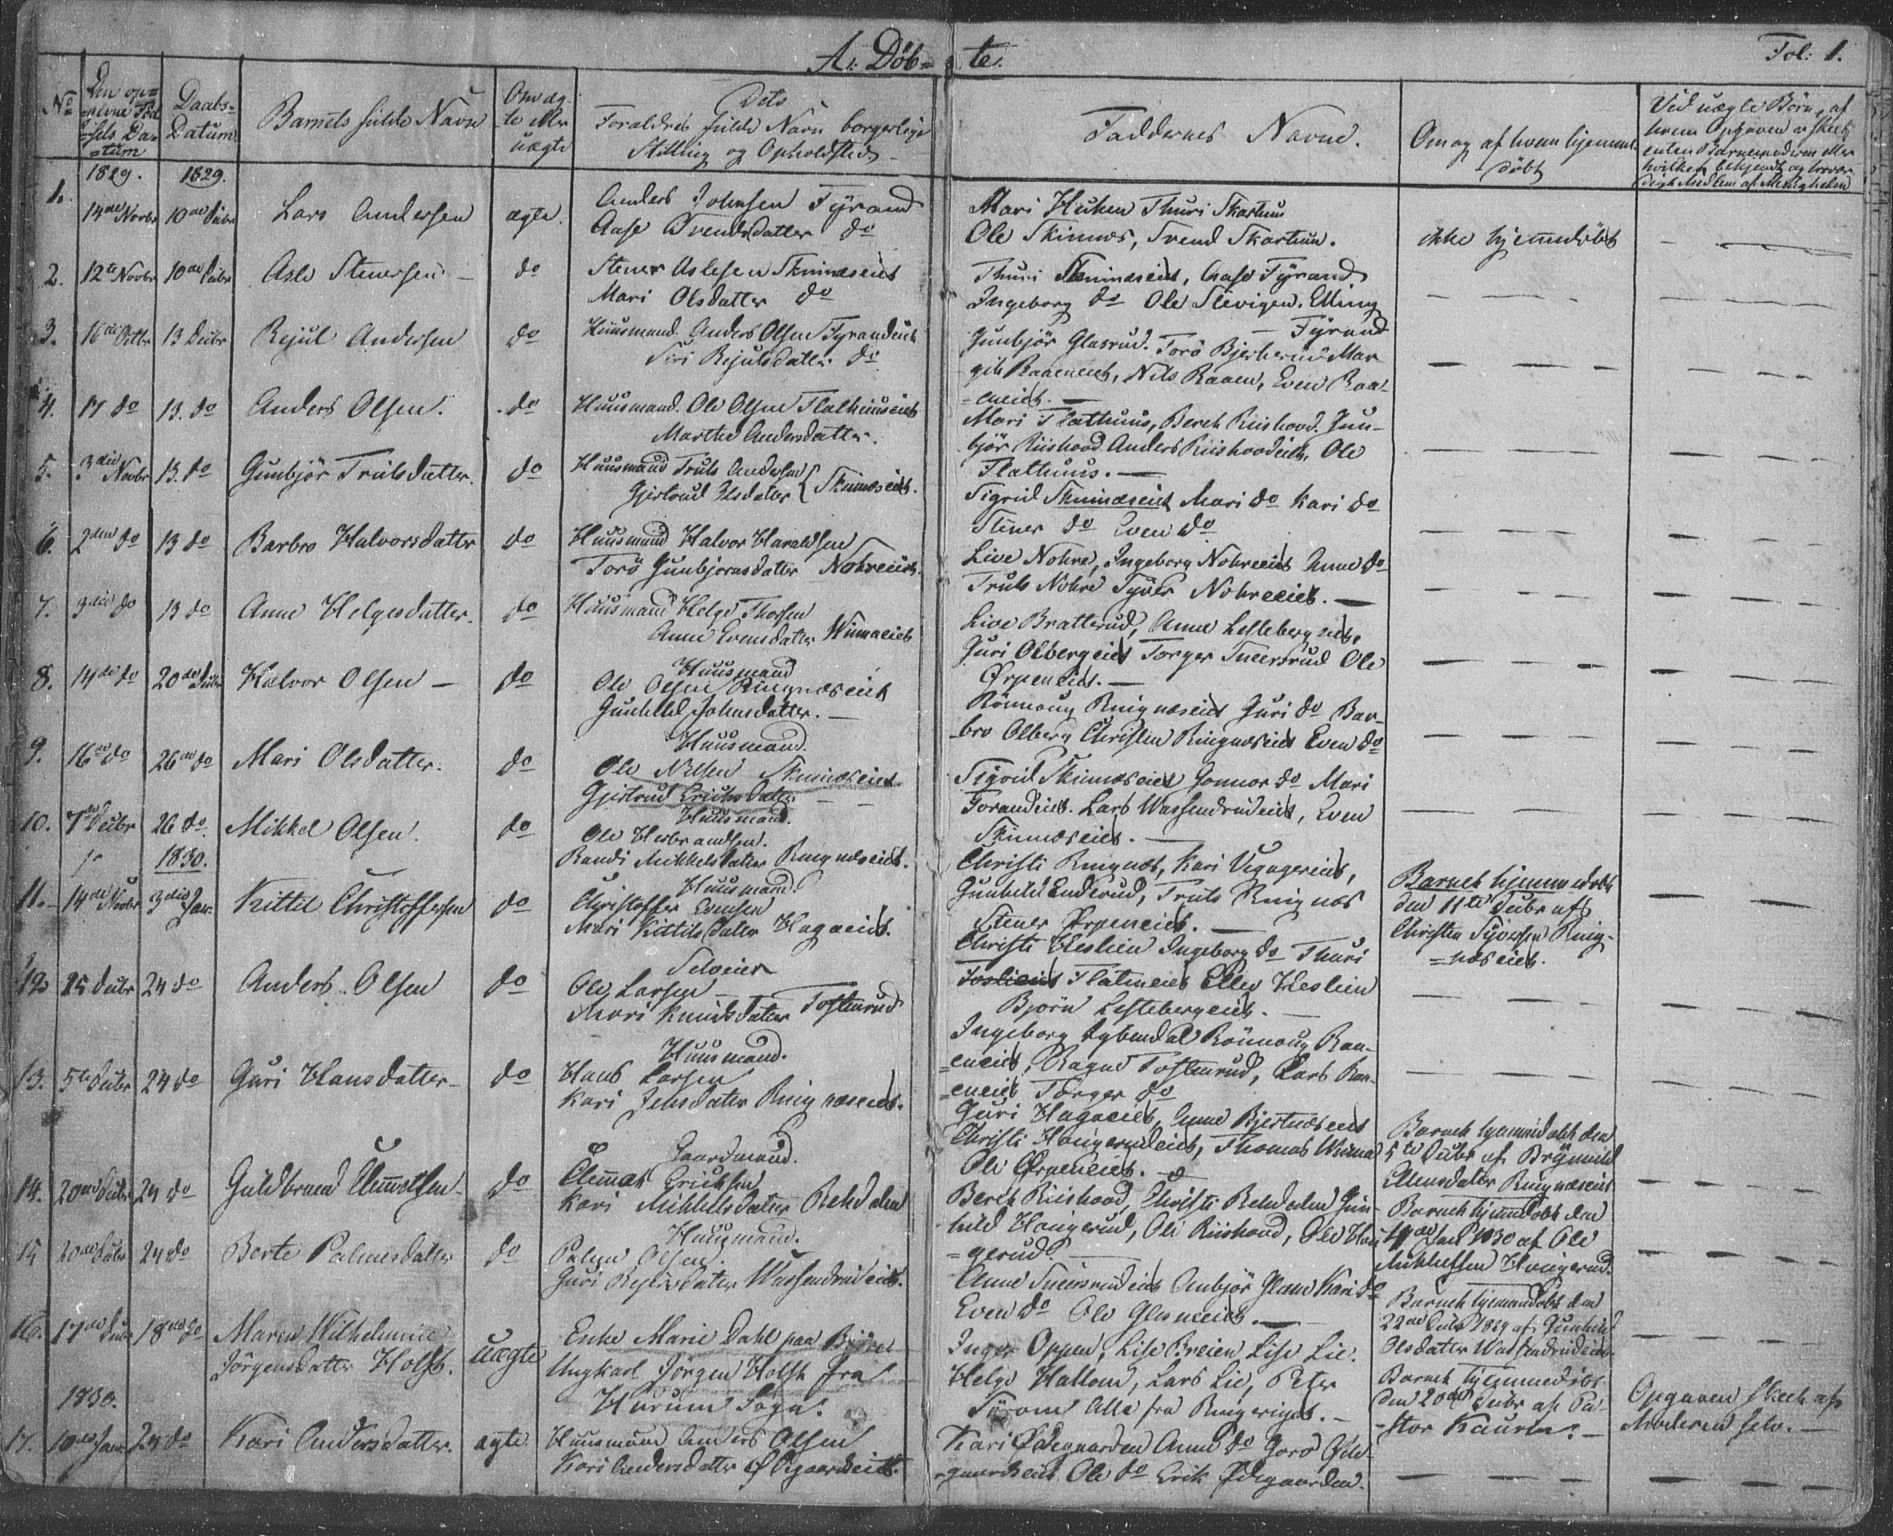 A. Döb= te.
Fol: 1.
No
Daabs-Datum
Barnets fulde Navn
Ægte eller uægte
Dets
Foraldres fulde Navn borgerlige
Stilling og Opholdsted
Faddernes Navne.
Om og af hvem hjemme-
döbt
Ved uægte Börn, af
hvem Opgaven er skeet
enten Barnemoderen eller
1829. 1829.
1. 14de Novbr 10de Debr Lars Andersen ægte.
Anders Johnsen Fÿrand
Aase Trendsdatter do
Mari Huken Thuri Skartum
Ole Skinnæs, Trend Skartum.
ikke hjemmedöbt
2. 12te Novbr 10de Debr Asle Stenersen do
Stener Aslesen Skinnæseiet
Mari Olsdatter do
Thuri Skinnæseiet, Aase Fÿrand
Ingeborg do Ole Stevigen. Elling
Fÿrand
3. 16de Octbr 13 Debr Rejul Andersen do
Huusmand Anders Olsen Fyrandeiet
Siri Rejulsdatter. do
Gunbjör Glasrud. Torö Bjerkerud Mar
git Raaeneiet, Nils Raaen, Even Raa-
=eneiet.
4. 17 do 13. do Anders Olsen. do
Huusmand. Ole Olsen Flathuuseiet
Marthe Andersdatter.
Mari Flathuus, Bereth Riishovd. Gun-
björ Riishovd Anders Riishovdeiet, Ole
Flathuus.
5. 3die Novbr 13. do Gunbjör Trulsdatter. do
Huusmand Truls Andersen
Gjertrud Olsdatter Skinnæseiet.
Sigrid Skinnæseiet Mari do Kari do
Stener do Even do
6. 2den do 13 do Barbro Halvorsdatter do
Huusmand Halvor Haraldsen
Torö Gunbjornsdatter Nohreeiet.
Live Nohre, Ingeborg Nohreeiet Anne do
Truls Nohre Tyver Nohreeiet.
7. 3die do 13 do Anne Helgesdatter. do
Huusmand Helge Thorsen
Anne Evensdatter Wimaeiet
Live Bratterud, Anne Lesteberg eiet,
Guri Olbergeiet Torger Tueersrud Ole
Ørpeneiet.
8. 14de do 20de Debr Halvor Olsen do
Huusmand
Ole Olsen Ringnæseiet
Gunhild Johnsdatter.
Rönnoug Ringnæseiet Guri do Bar-
bro Olberg Christen Ringnæseiet Even do
9. 16de do 26de do Mari Olsdatter. do
Huusmand.
Ole Nilsen Skinnæseiet
Gjertrud Erichsdatter
Sigrid Skinnæseiet Gonnor do Mari
Forandeiet. Lars Wassendrudeiet, Even
Skinnæseiet.
10. 7de Debr 26 do. Mikkel Olsen. do
Huusmand.
Ole Herbrandsen.
Randi Mikkelsdatter Ringnæseiet.
Christi Ringnæs, Kari Vegageriet,
Gunhild Enderud, Truls Ringnæs
Stener Ørpeneiet.
1830.
11. 14de Novbr 3die Jan. Kittil Christoffersen do
Huusmand.
Christoffer Evensen
Mari Kittilsdatter Hagaeiet.
Christi Heslien Ingeborg do Thuri
Flatineiet Elley Heslien
Björn Lestebergeiet.
Barnet hjemmedöbt
den 11te Debr af
Christen Tyversen Ring-
=næseiet.
12 25 Debr 24 do Anders Olsen do
Selveier
Ole Larsen
Mari Knudsdatter Tostenrud
Ingeborg Rönnoug Raa-
=eneiet, Ragne Tostenrud, Lars Raa-
=eneiet Torger do
13. 5te Debr 24 do Guri Hansdatter do
Huusmand.
Hans Larsen
Kari Jensdatter Ringnæseiet.
Guri Hagaeiet, Anne Bjertnæseiet
Christi Haugerudeiet, Thomas Wiima
Ole Ørpeneiet.
Barnet hjemmedöbt den
5te Debr af Brÿnhild
Ellensdatter Ringnæseiet
14. 20de Debr 24 do Guldbrand Clemetsen do
Gaardmand.
Clemmet Ericksen
Kari Mikkelsdatter Rekdalen
Bereth Riishovd, Christi Rekdalen Gun-
hild Haugerud, Ole Riishovd, Ole Hau
=gerud.
Barnet hjemmedöbt den
Jan 1830 af Ole
Mikkelsen Haugerud.
15 20de Debr 24 do Berte Palmesdatter do
Huusmand.
Palme Olsen.
Guri Wassendrudeiet.
Anne Tueersrudeiet Anbjör Kari do
Even do Ole Glesneeiet.
Barnet hjemmedöbt den
22de Debr 1829 af Gunhild
Olsdatter Wassendrudeiet
16. 17de Debr 18de do Maren Wilhelmine
Jörgensdatter Holst. uægte
Enke Marie Dahl paa
Ungkarl Jörgen Holst fra
Hurum Sogn.
Inger Oppen, Lise Breien Lise Lie.
Helge Hallom, Lars Lie, Peter
Alle fra Ringeriget.
Barnet hjemmedöbt
den 20de Debr af Pa-
-stor Kaurin.
Opgaven skeet af
Moderen selv.
1830.
17. 10de Jan. 24 do Kari Andersdatter. ægte
Huusmand Anders Olsen
Kari Andersdatter Ødegaardseiet.
Kari Ødegaarden Anne do Goro Øde-
-gaardseiet. Ole do Erik Ødegaarden.